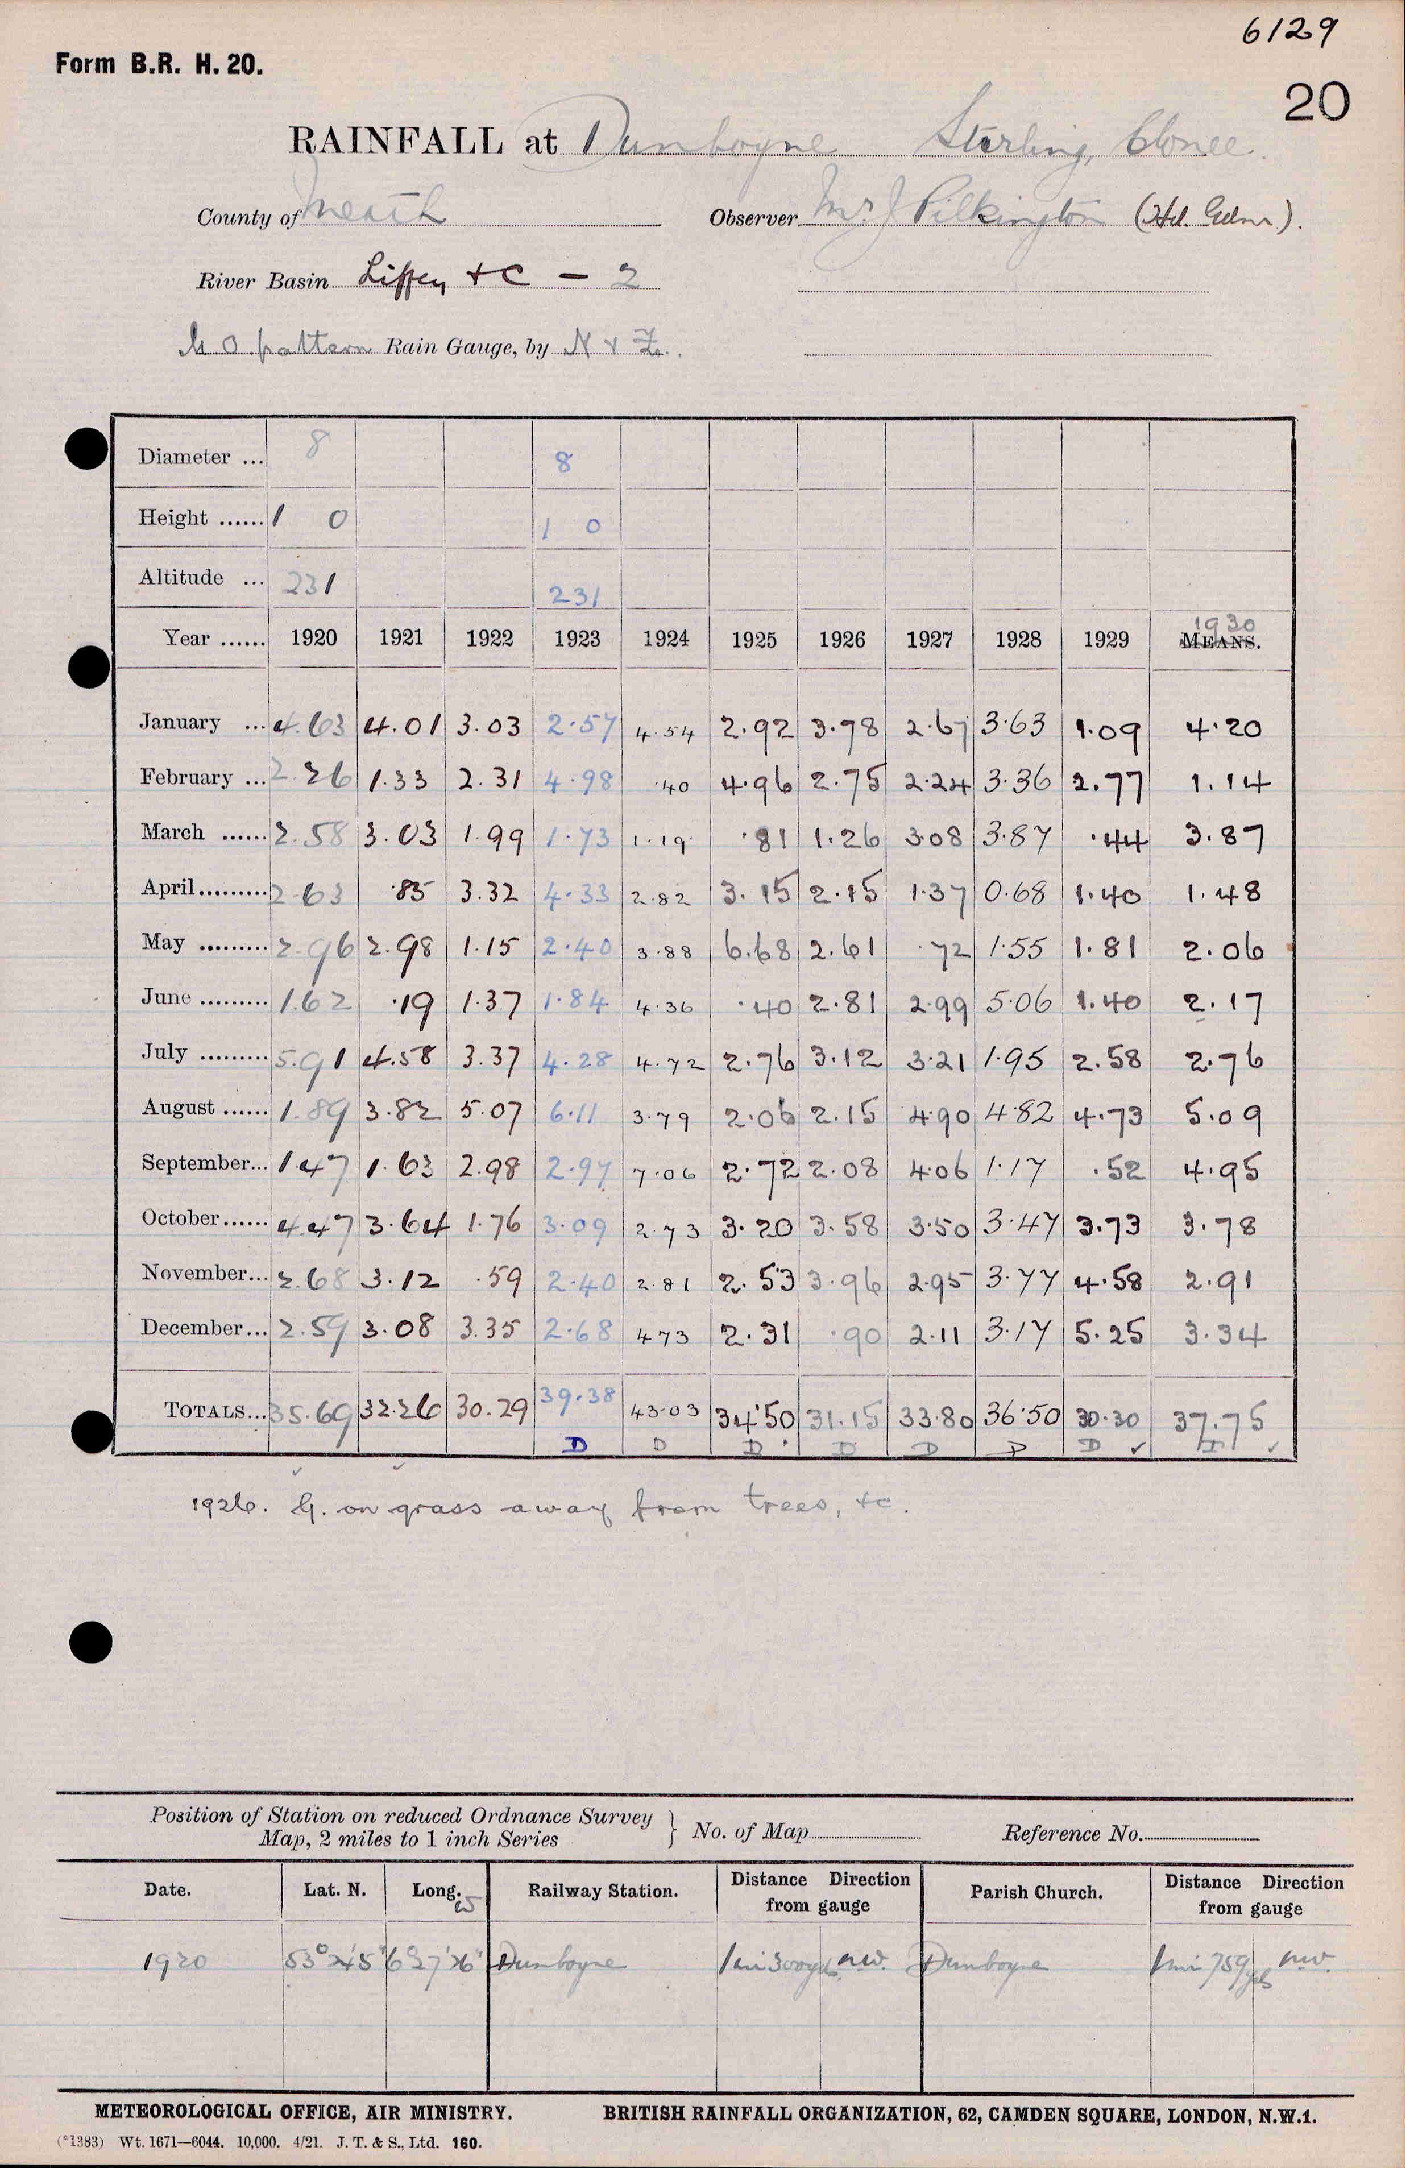 6129
Form B.R. H. 20.
20
RAINFALL at Dunboyne Sterling, Clonee.
County of Meath Observer Mr J Pilkington (Hd. Gdnr.).
River Basin Liffey +c — 2
M O pattern Rain Gauge, by N & Z.
Diameter ... 8 8
Height ...... 1 0 1 0
Altitude ... 231 231
1930
Year ...... 1920 1921 1922 1923 1924 1925 1926 1927 1928 1929 MEANS.
January ... 4.63 4.01 3.03 2.57 4.54 2.92 3.78 2.67 3.63 1.09 4.20
February ... 2.26 1.33 2.31 4.98 .40 4.96 2.75 2.24 3.36 2.77 1.14
March ...... 2.58 3.03 1.99 1.73 1.19 .81 1.26 3.08 3.87 .44 3.87
April......... 2.63 .85 3.32 4.33 2.82 3.15 2.15 1.37 0.68 1.40 1.48
May ......... 2.96 2.98 1.15 2.40 3.88 6.68 2.61 .72 1.55 1.81 2.06
June ......... 1.62 .19 1.37 1.84 4.36 .40 2.81 2.99 5.06 1.40 2.17
July ......... 5.91 4.58 3.37 4.28 4.72 2.76 3.12 3.21 1.95 2.58 2.76
August ...... 1.89 3.82 5.07 6.11 3.79 2.06 2.15 4.90 4.82 4.73 5.09
September... 1.47 1.63 2.98 2.97 7.06 2.72 2.08 4.06 1.17 .52 4.95
October...... 4.47 3.64 1.76 3.09 2.73 3.20 3.58 3.50 3.47 3.73 3.78
November... 2.68 3.12 .59 2.40 2.81 2.53 3.96 2.95 3.77 4.58 2.91
December... 2.59 3.08 3.35 2.68 4.73 2.31 .90 2.11 3.17 5.25 3.34
TOTALS... 35.69 32.26 30.29 39.38 43.03 34.50 31.15 33.80 36.50 30.30 37.75
D D D D D D D ✓ D ✓
✓ ✓
1926. G. on grass away from trees, +c.
Position of Station on reduced Ordnance Survey
Map, 2 miles to 1 inch Series } No. of Map Reference No.
Date. Lat. N. Long. W Railway Station. Distance Direction from gauge Parish Church. Distance Direction from gauge
1920 53° 24' 5" 6° 27' 26" Dunboyne 1 mi 300 yds NW. Dunboyne 1 mi 759 yds NW.
METEOROLOGICAL OFFICE, AIR MINISTRY. BRITISH RAINFALL ORGANIZATION, 62, CAMDEN SQUARE, LONDON, N.W.1.
(*1383) Wt. 1671—6044. 10,000. 4/21. J. T. & S., Ltd. 160.